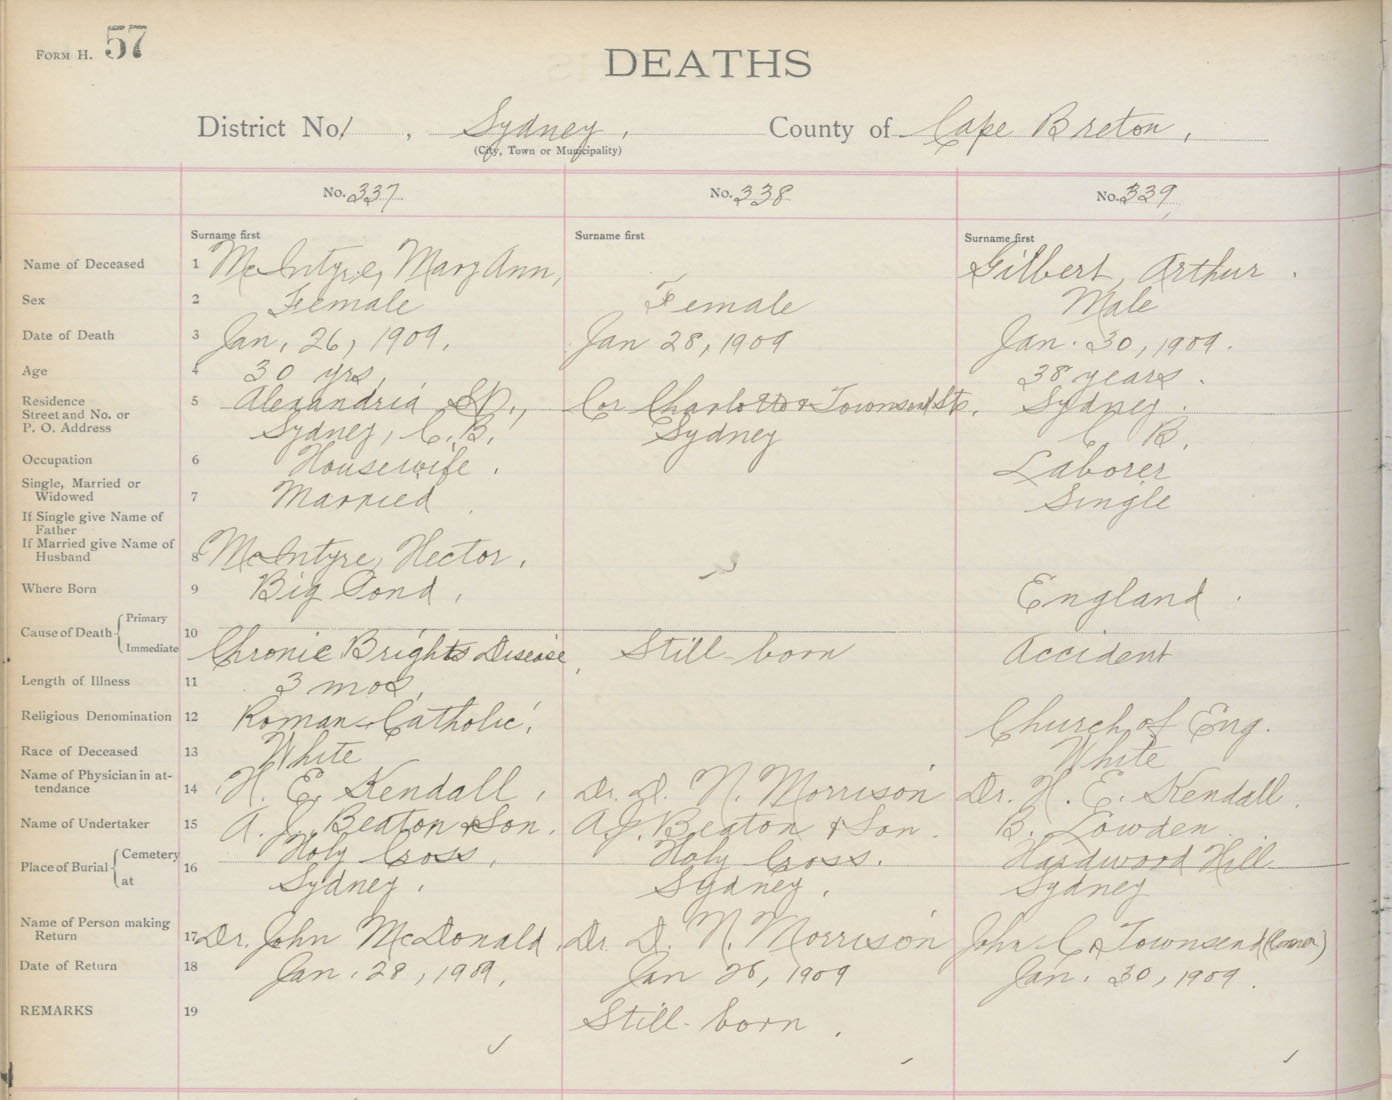 FORM H. 57
DEATHS
District No. 1, Sydney, County of Cape Breton,
(City, Town or Municipality)
No. 337 No. 338 No. 339
Surname first Surname first Surname first
Name of Deceased 1 McIntyre, Mary Ann, Gilbert, Arthur.
Sex 2 Female Female Male
Date of Death 3 Jan. 26, 1909. Jan 28, 1909 Jan. 30, 1909.
Age 4 30 yrs, 38 years.
Residence 5 Alexandria St., Cor Charlotte & Townsend Sts. Sydney.
Street and No. or
P. O. Address Sydney, C.B. Sydney C. B.
Occupation 6 Housewife. Laborer
Single, Married or
Widowed 7 Married. Single
If Single give Name of
Father
If Married give Name of
Husband 8 McIntyre, Hector.
Where Born 9 Big Pond, England.
Cause of Death Primary 10
Immediate Chronic Brights Disease, Still-born Accident
Length of Illness 11 3 mos,
Religious Denomination 12 Roman Catholic. Church of Eng.
Race of Deceased 13 White White
Name of Physician in at-
tendance 14 H. E. Kendall, Dr. D. N. Morrison Dr. H. E. Kendall.
Name of Undertaker 15 A. J. Beaton & Son. A. J. Beaton & Son. B. Lowden
Place of Burial Cemetery 16 Holy Cross, Holy Cross. Hardwood Hill
at Sydney. Sydney. Sydney
Name of Person making
Return 17 Dr. John McDonald, Dr. D. N. Morrison John C. Townsend (Coroner)
Date of Return 18 Jan. 28, 1909. Jan 28, 1909 Jan. 30, 1909.
REMARKS 19 Still-born.